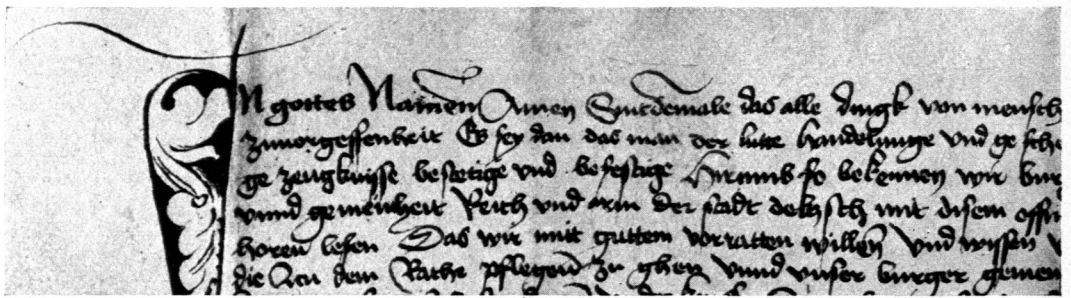 In gottes Namen Amen Sintdemale das alle dingk von mensch
zuuorgessenheit Es sey dan das man der lutte handelunge vnd gesche
ge zeugknisse bestetige vnd befestige Hirumb so bekennen wir bur
vnnd gemeinheit Reich vnd arm der stadt delitzsch mit disem offn
horen lesen Das wir mit guttem vorratten willen vnd wissen
die dem Rathe pflegenn zu ghen vnnd vnser burger gemein